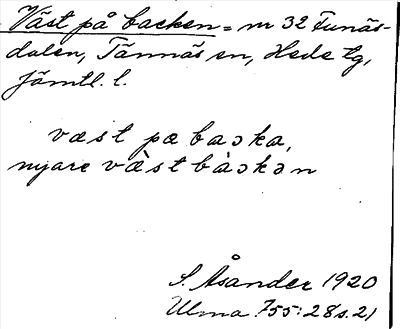 Väst på backen = nr 32 Funäs-
dalen, Tännäs sn, Hede tg,
Jämtl. l.
væst pæ baɔka,
nyare vàstbàɔkən
S. Åsander 1920
Ulma 755:28 s. 21